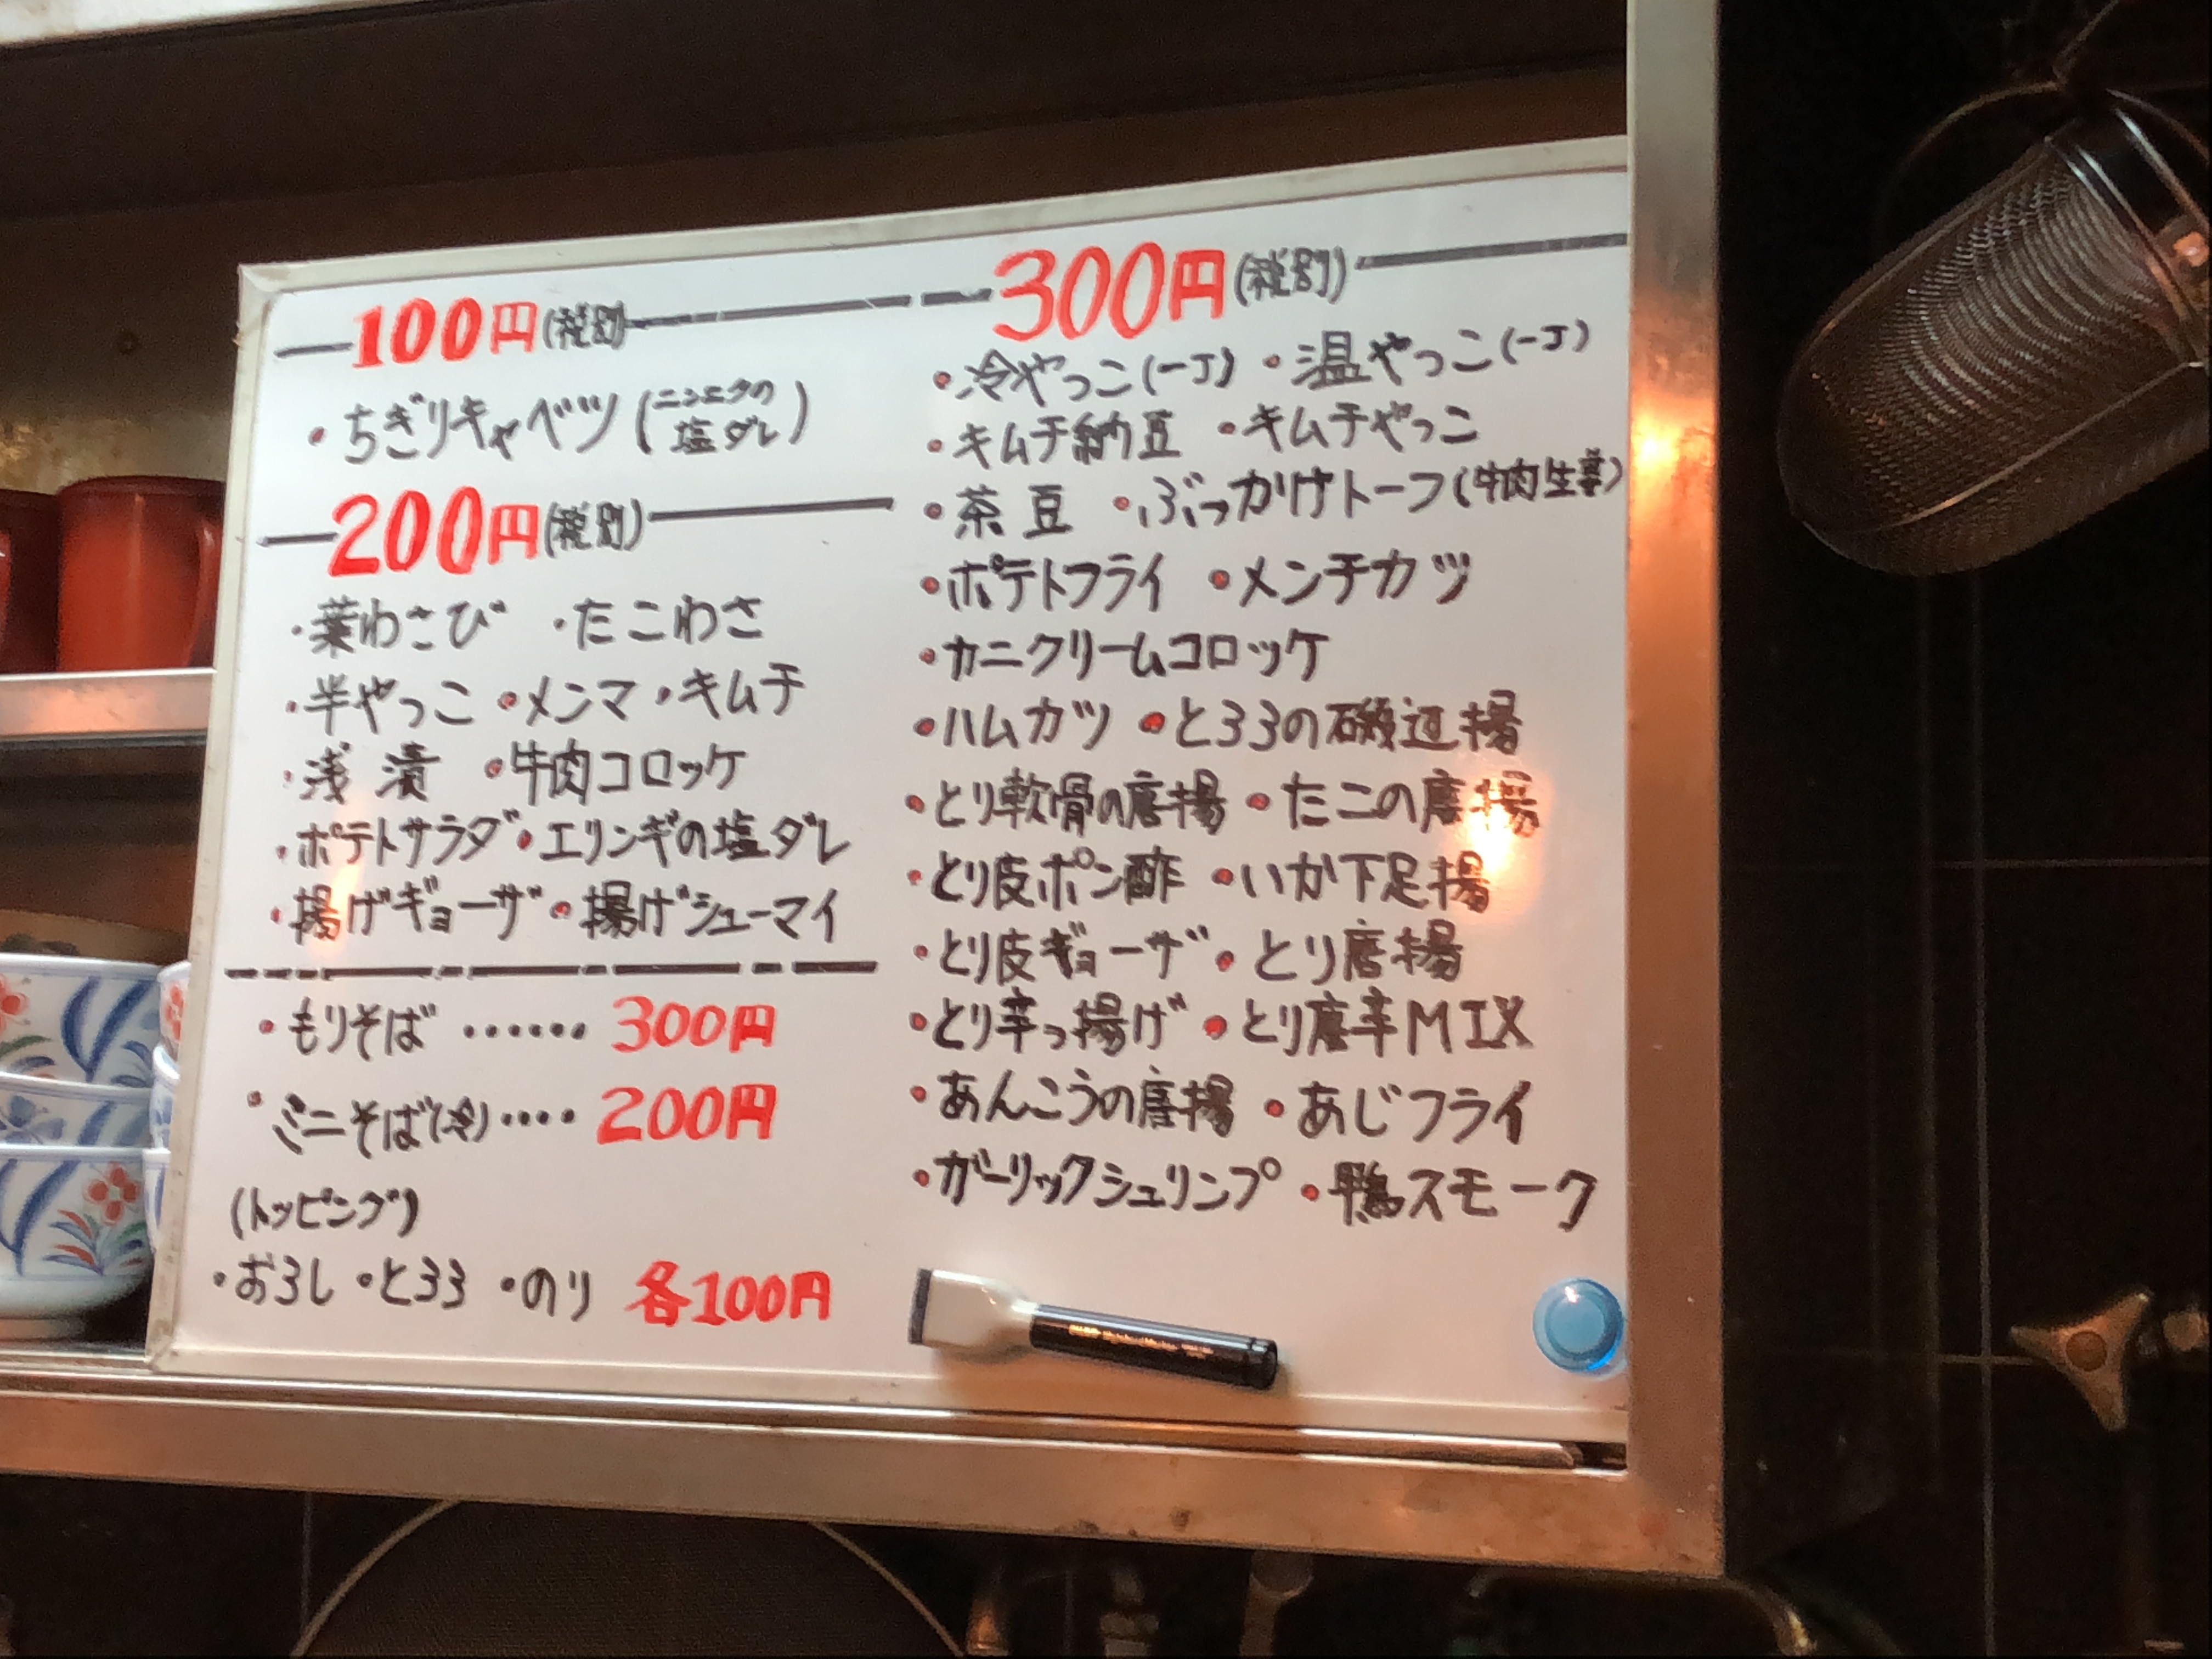 100円(税別)
・ちぎりキャベツ(ニンニクの塩ダレ)
200円(税別)
・葉わさび ・たこわさ
・半やっこ ・メンマ ・キムチ
・浅漬 ・牛肉コロッケ
・ポテトサラダ ・エリンギの塩ダレ
・揚げギョーザ ・揚げシューマイ
・もりそば ・・・・・・ 300円
・ミニそば(冷) ・・・・ 200円
(トッピング)
・おろし ・とろろ ・のり 各100円
300円(税別)
・冷やっこ(一丁) ・温やっこ(一丁)
・キムチ納豆 ・キムチやっこ
・茶豆 ・ぶっかけトーフ(牛肉生姜)
・ポテトフライ ・メンチカツ
・カニクリームコロッケ
・ハムカツ ・とろろの磯辺揚
・とり軟骨の唐揚 ・たこの唐揚
・とり皮ポン酢 ・いか下足揚
・とり皮ギョーザ ・とり唐揚
・とり辛っ揚げ ・とり唐辛MIX
・あんこうの唐揚 ・あじフライ
・ガーリックシュリンプ ・鴨スモーク